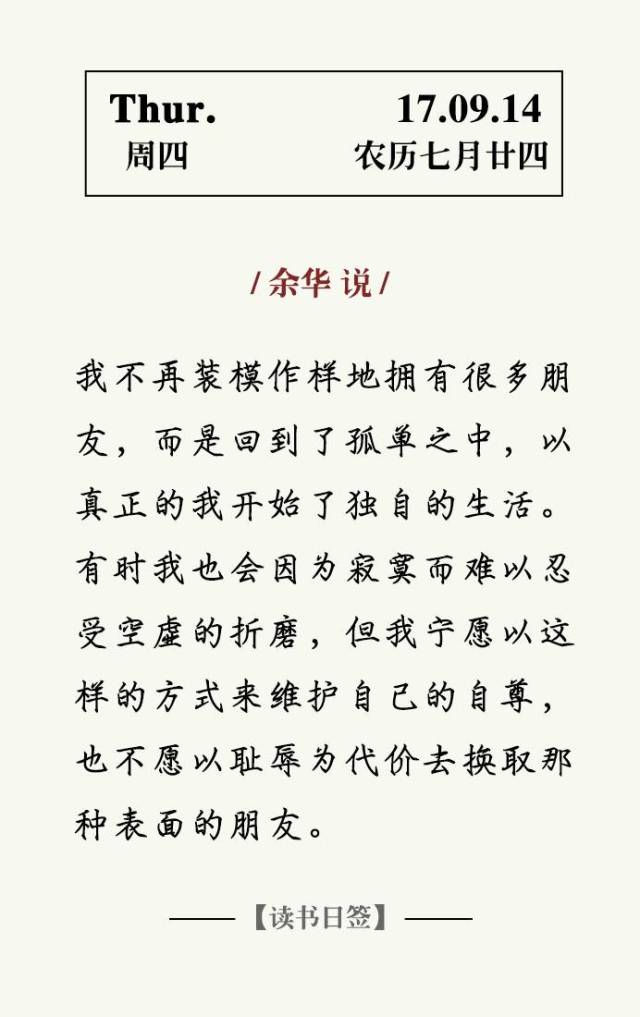 Thur. 17.09.14
周四 农历七月廿四
/ 余华 说 /
我不再装模作样地拥有很多朋
友，而是回到了孤单之中，以
真正的我开始了独自的生活。
有时我也会因为寂寞而难以忍
受空虚的折磨，但我宁愿以这
样的方式来维护自己的自尊，
也不愿以耻辱为代价去换取那
种表面的朋友。
【读书日签】